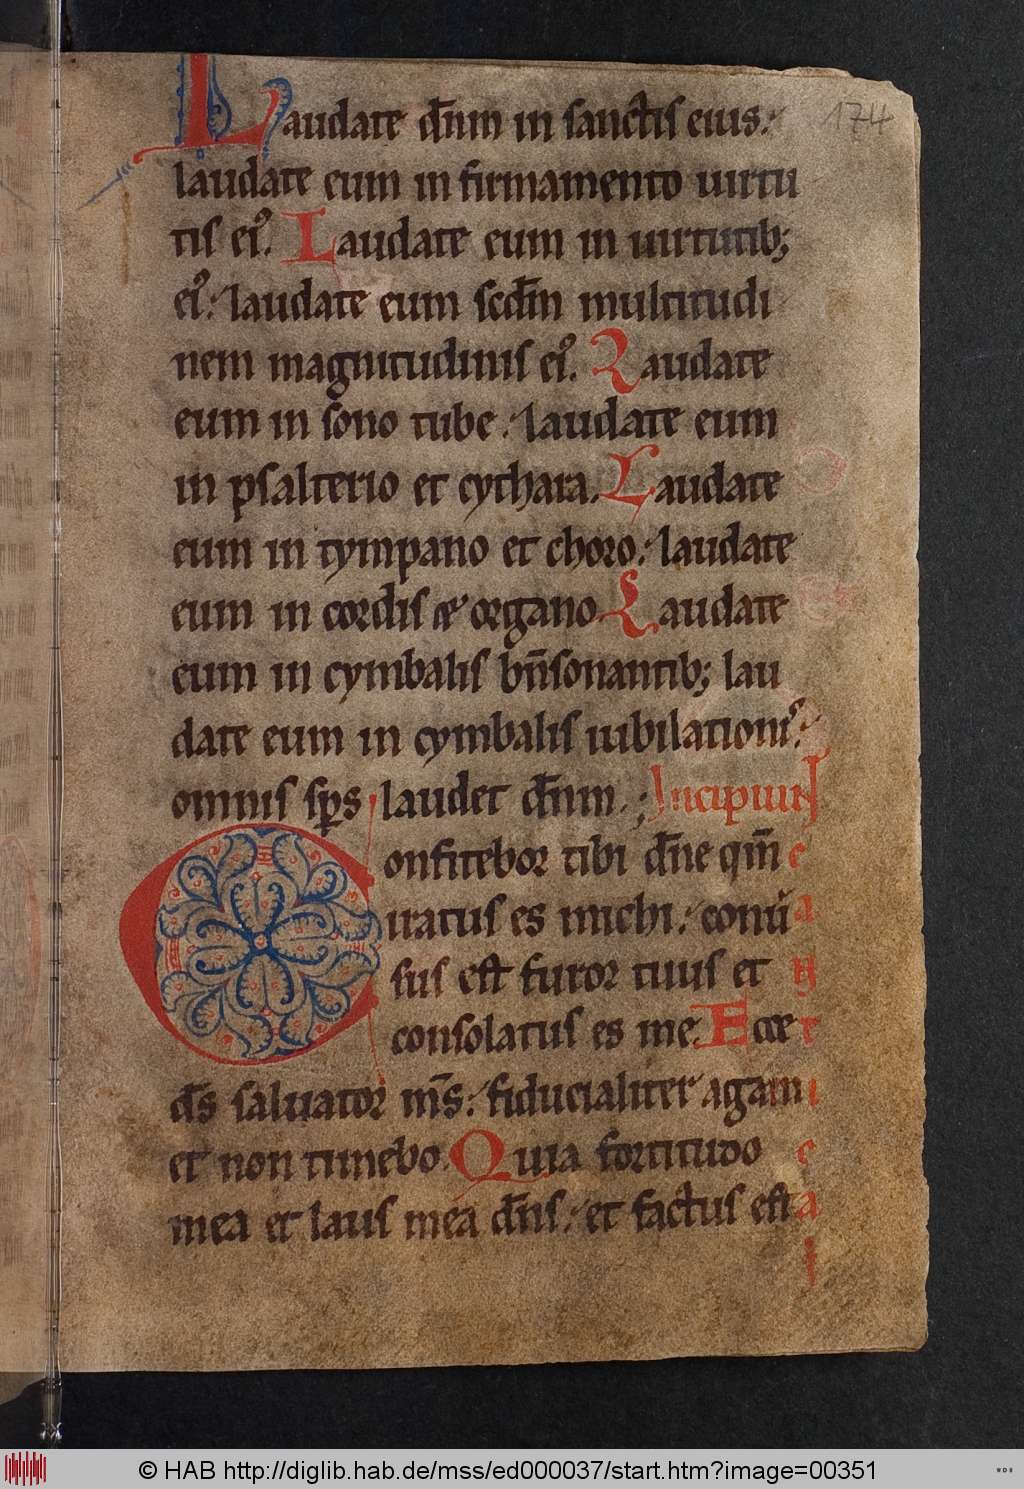 174
Laudate dn̄m in sanctis eius.
laudate eum in firmamento uirtu
tis ei᾽. Laudate eum in uirtutib;
ei᾽. laudate eum scd̄m multitudi
nem magnitudinis ei᾽. Laudate
eum in sono tube. laudate eum
in psalterio et cythara. Laudate
eum in tympano et choro. laudate
eum in cordis & organo. Laudate
eum in cymbalis bn̄sonantib; lau
date eum in cymbalis iubilationi᾽.
omnis sp̄s laudet dn̄m. Incipiun
Confitebor tibi dn̄e qm̄ c
iratus es michi. conu̾ a
sus est furor tuus et n
consolatus es me. Ecce t
d̄s saluator m̄s. fiducialiter agam i
et non timebo. Quia fortitudo c
mea et laus mea dn̄s. et factus est a
© HAB http://diglib.hab.de/mss/ed000037/start.htm?image=00351